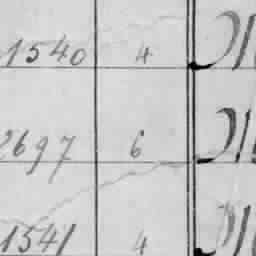 1540 4
2697 6
1541 4